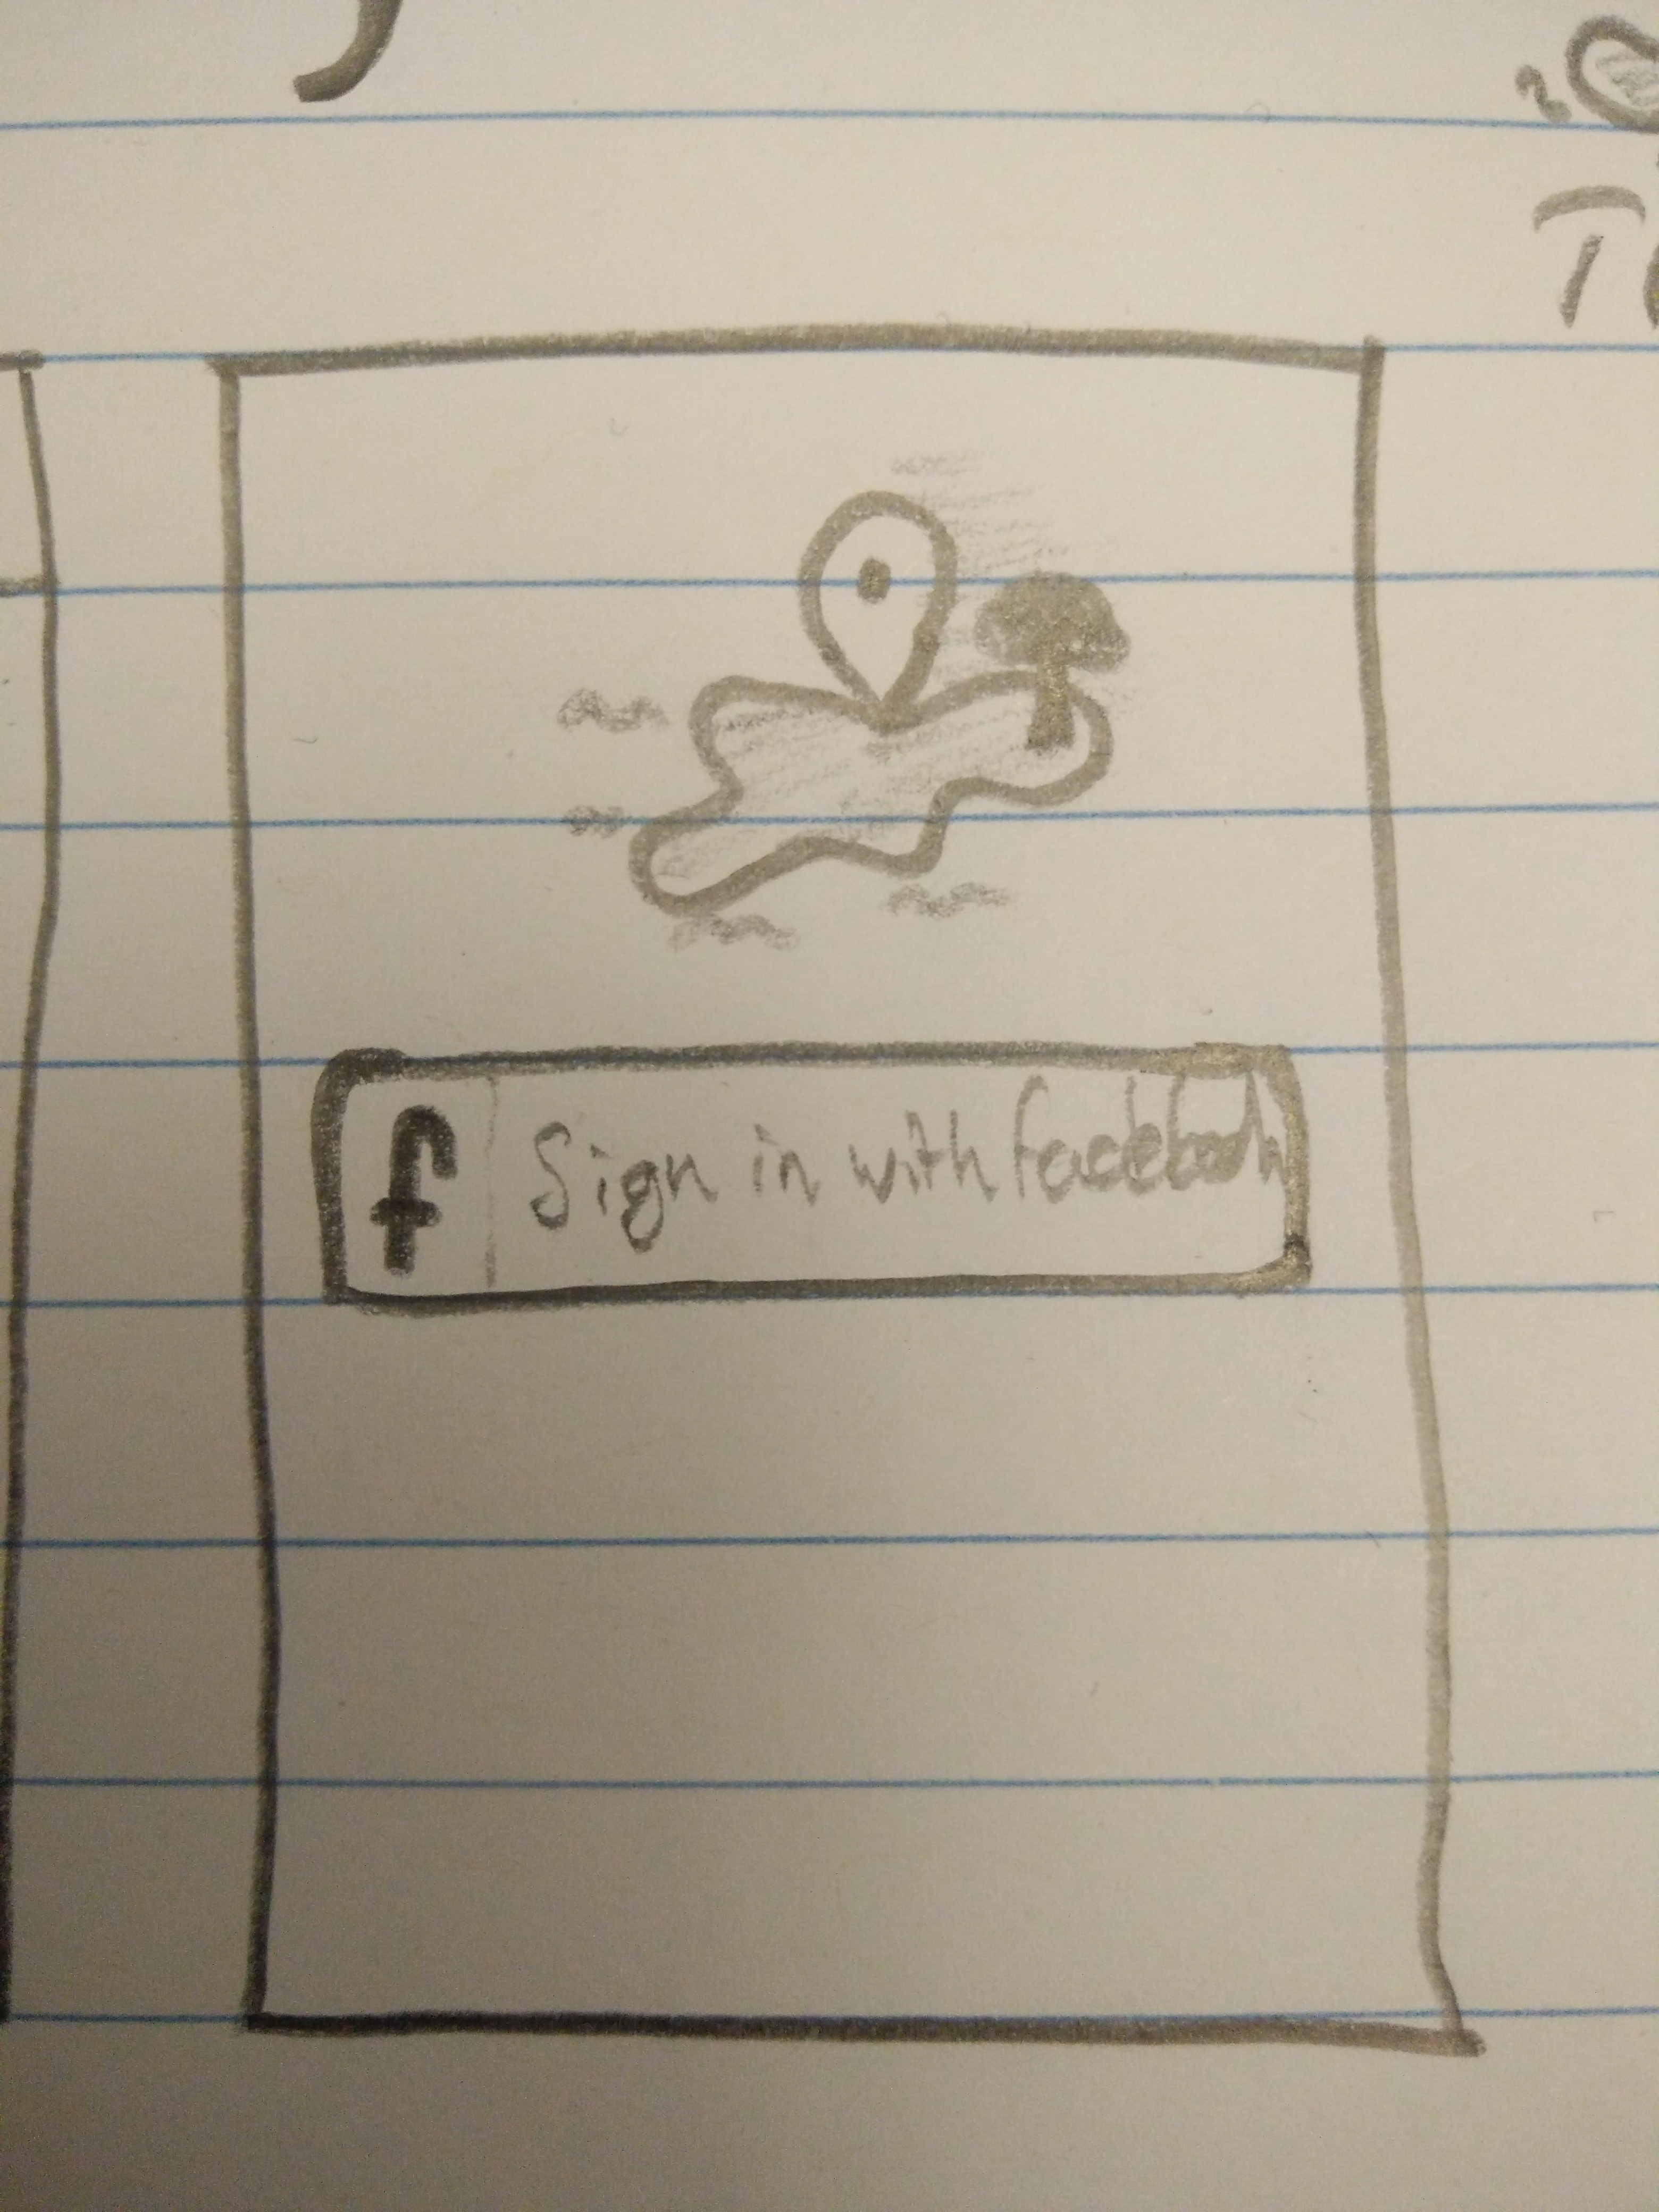 f Sign in with facebook